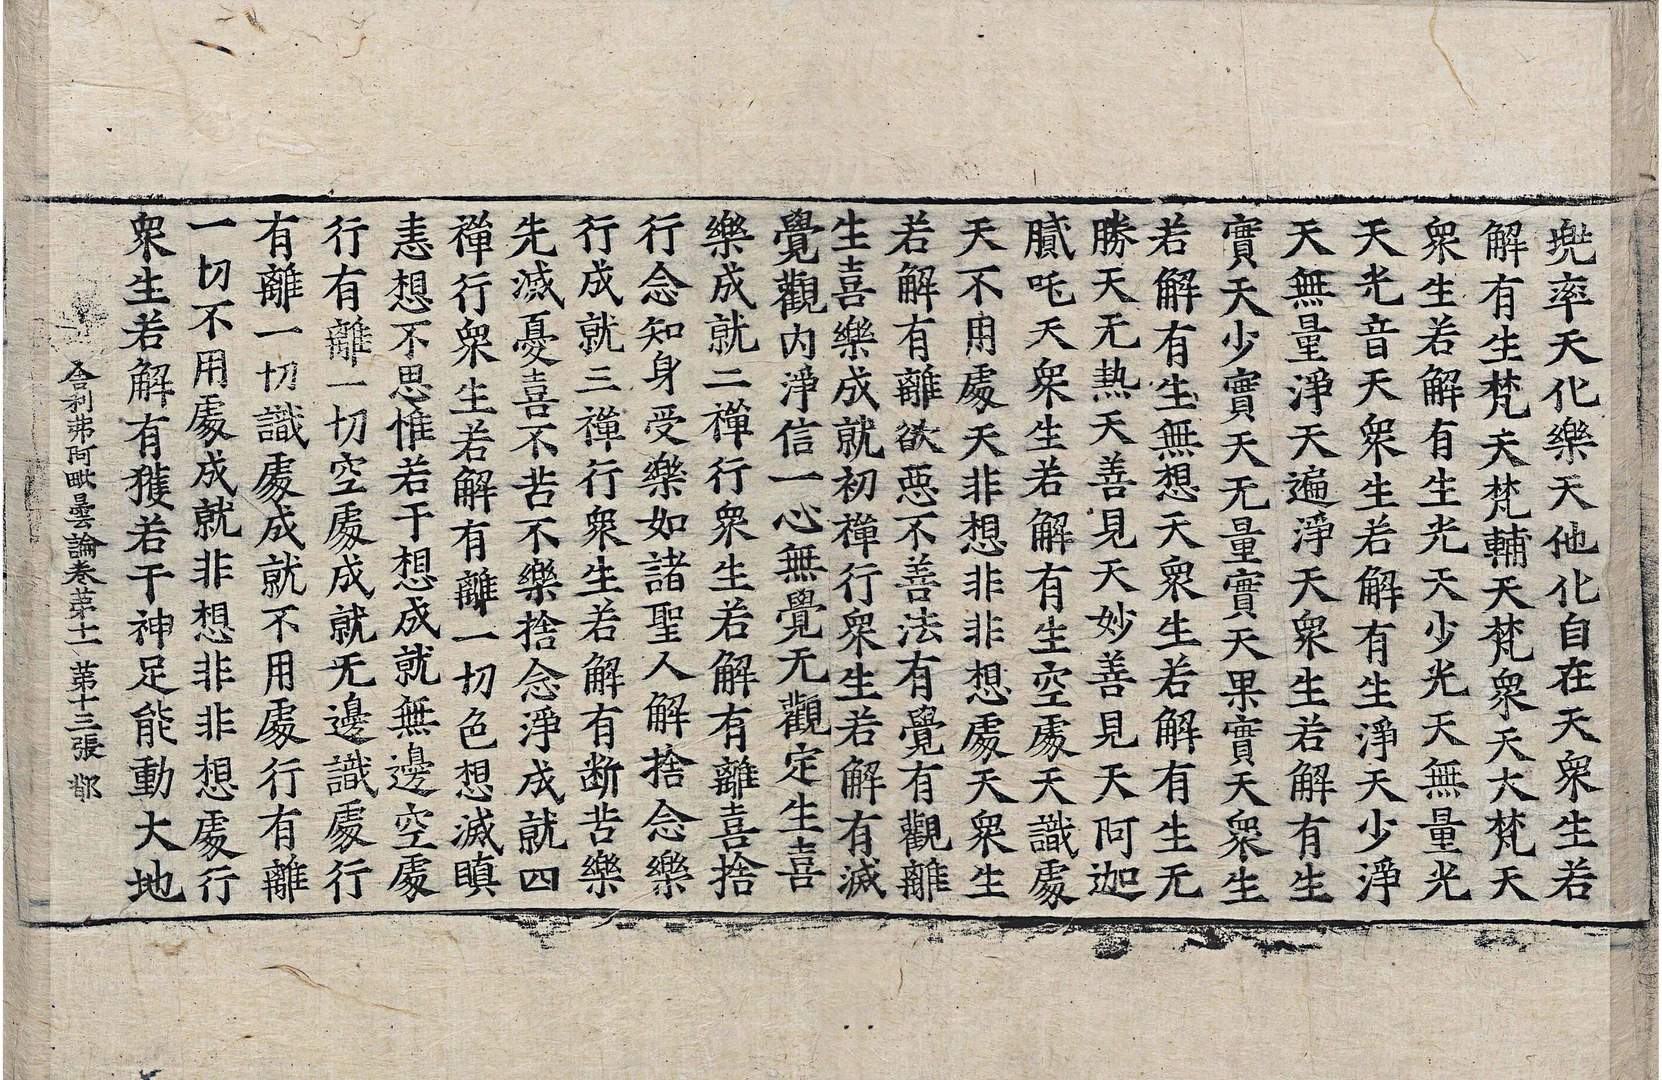 兠率天化樂天他化自在天衆生若
解有生梵天梵輔天梵衆天大梵天
衆生若解有生光天少光天無量光
天光音天衆生若解有生淨天少淨
天無量淨天遍淨天衆生若解有生
實天少實天无量實天果實天衆生
若解有生無想天衆生若解有生无
勝天无熱天善見天妙善見天阿迦
膩吒天衆生若解有生空處天識處
天不用處天非想非非想處天衆生
若解有離欲惡不善法有覺有觀離
生喜樂成就初禪行衆生若解有滅
覺觀内淨信一心無覺无觀定生喜
樂成就二禪行衆生若解有離喜捨
行念知身受樂如諸聖人解捨念樂
行成就三禪行衆生若解有断苦樂
先滅憂喜不苦不樂捨念淨成就四
禪行衆生若解有離一切色想滅瞋
恚想不思惟若干想成就無邊空處
行有離一切空處成就无邊識處行
有離一切識處成就不用處行有離
一切不用處成就非想非非想處行
衆生若解有獲若干神足能動大地
舍利弗阿毗曇論卷苐十一 苐十三張 都